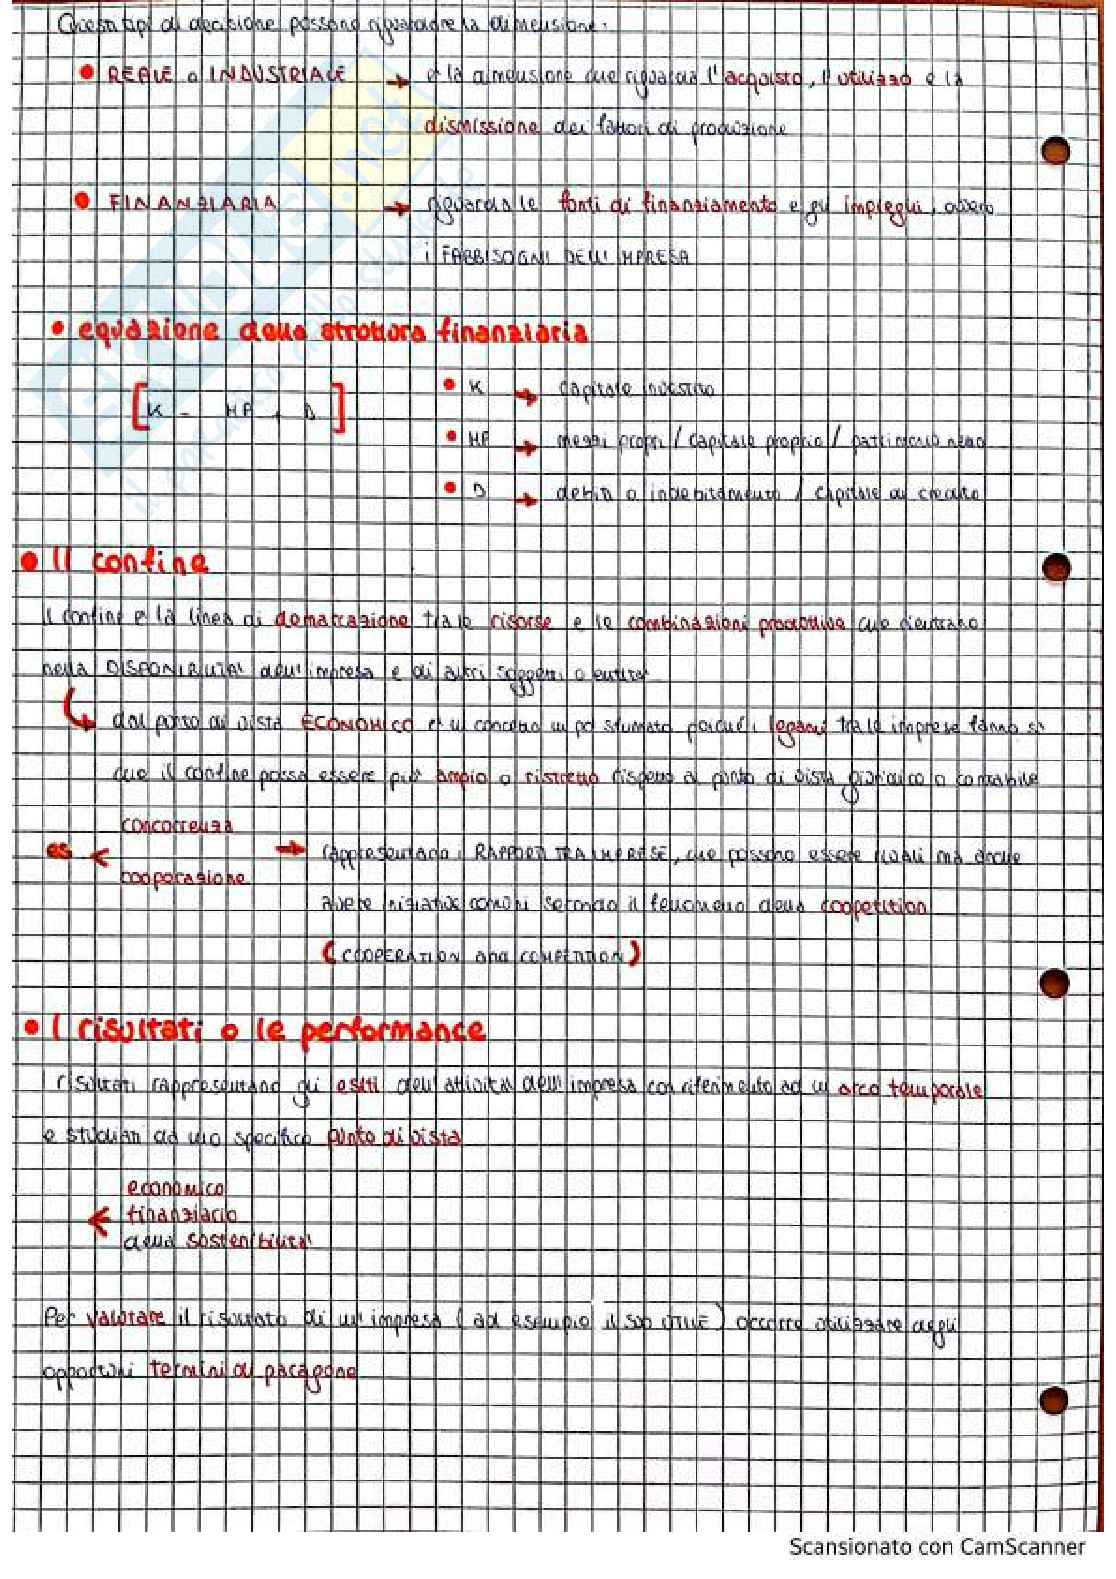 Questi tipi di decisione possono riguardare la dimensione:
• REALE o INDUSTRIALE → è la dimensione che riguarda l'acquisto, l'utilizzo e la
dismissione dei fattori di produzione
• FINANZIARIA → riguarda le fonti di finanziamento e gli impieghi, ovvero
i FABBISOGNI DELL'IMPRESA
• equazione della struttura finanziaria
[K = MP + D]
• K → capitale investito
• MP → mezzi propri / capitale proprio / patrimonio netto
• D → debiti o indebitamento / capitale di credito
• Il confine
Il confine è la linea di demarcazione tra le risorse e le combinazioni produttive che rientrano
nella DISPONIBILITA' dell'impresa e di altri soggetti o entità
dal punto di vista ECONOMICO è un concetto un po' sfumato poiché i legami tra le imprese fanno sì
che il confine possa essere più ampio o ristretto rispetto al punto di vista giuridico o contabile
concorrenza
es < → rappresentano i RAPPORTI TRA IMPRESE, che possono essere rivali ma anche
cooperazione
avere iniziative comuni secondo il fenomeno della coopetition
(COOPERATION and COMPETITION)
• I risultati o le performance
I risultati rappresentano gli esiti dell'attività dell'impresa con riferimento ad un arco temporale
e studiati ad uno specifico punto di vista
economico
< finanziario
della sostenibilità
Per valutare il risultato di un'impresa (ad esempio il suo UTILE) occorre utilizzare degli
opportuni termini di paragone
Scansionato con CamScanner